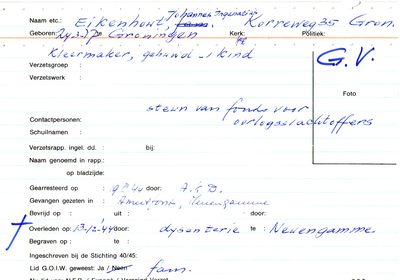 Johannes Ingenatius
Naam etc.: Eikenhout, Korreweg 35 Gron.
Geboren: 24-3-17 te Groningen Kerk: RK Politiek:
Kleermaker, gehuwd - 1 kind G.V.
Verzetsgroep :
Verzetswerk :
Foto
steun van fonds voor
oorlogsslachtoffers
Contactpersonen:
Schuilnamen :
Verzetsrapp. ingel. dd. : bij:
Naam genoemd in rapp.:
op bladzijde:
Gearresteerd op : door:
Gevangen gezeten in : Amersfoort, Neuengamme
Bevrijd op : uit : door:
Overleden op : 13-12-44 door: dysenterie te : Neuengamme
Begraven op : te :
Ingeschreven bij de Stichting 40/45:
Lid G.O.I.W. geweest: Ja / Neen fam.